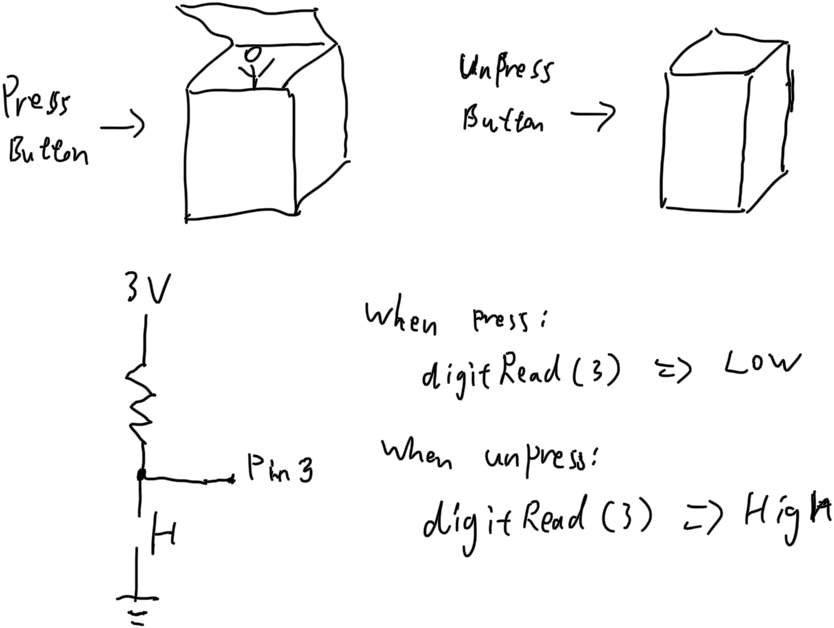 Press
Button
UnPress
Button
3V
Pin3
When press:
digitRead(3) => Low
When unpress:
digitRead(3) => High